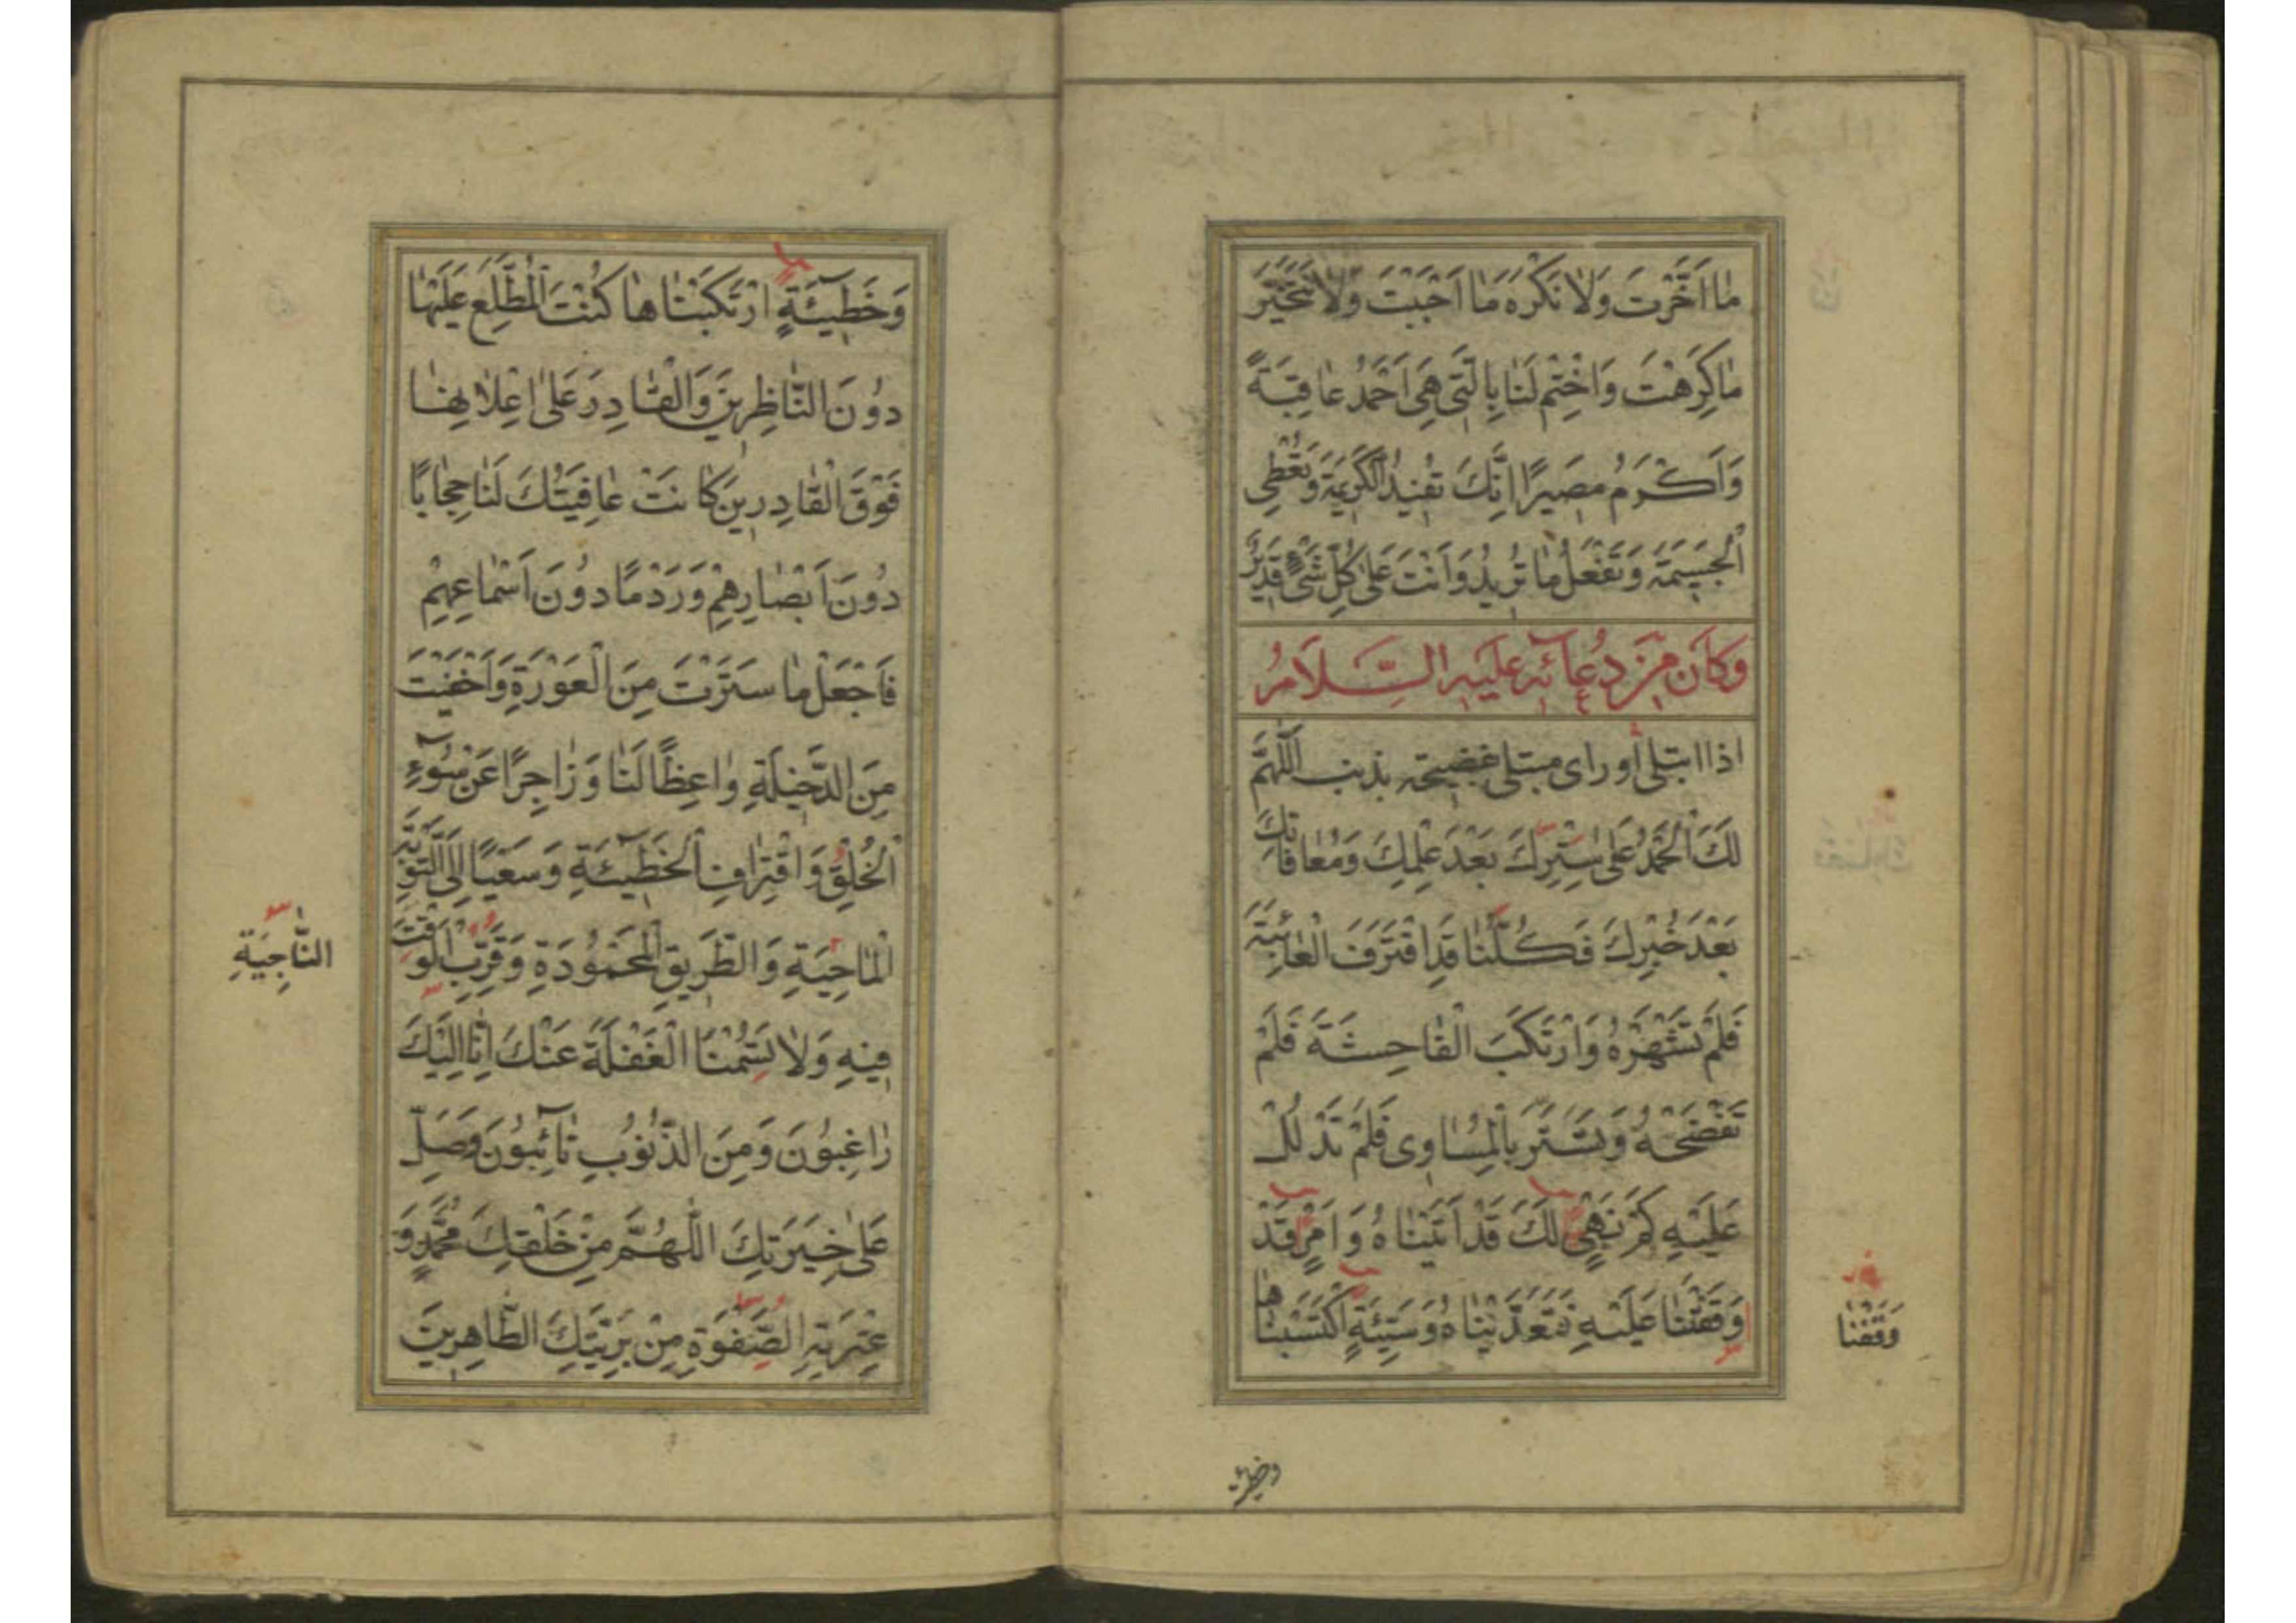 مٰا اَخَّرْتَ وَلٰا نَكْرَهَ مٰا اَحْبَبْتَ وَلٰا نَتَخَيَّرَ
مٰا كَرِهْتَ وَاخْتِمْ لَنٰا بِالَّتى هِىَ اَحْمَدُ عٰاقِبَةً
وَاَكْرَمُ مَصيرًا اِنَّكَ تُفيدُ الْكَريمَةَ وَتُعْطِى
الْجَسيمَةَ وَتَفْعَلُ مٰا تُريدُ وَاَنْتَ عَلىٰ كُلِّ شَىْءٍ قَديرٌ
وَكَانَ مِنْ دُعَائِهِ عَلَيْهِ السَّلَامُ
اذا ابتلى أو راى مبتلى بفضيحة بذنب اَللّٰهُمَّ
لَكَ الْحَمْدُ عَلىٰ سِتْرِكَ بَعْدَ عِلْمِكَ وَمُعٰافٰاتِكَ
بَعْدَ خُبْرِكَ فَكُلُّنٰا قَدِ اقْتَرَفَ الْعٰائِبَةَ
فَلَمْ تَشْهَرْهُ وَارْتَكَبَ الْفٰاحِشَةَ فَلَمْ
تَفْضَحْهُ وَتَسَتَّرَ بِالْمَسٰاوِى فَلَمْ تَدْلُلْ
عَلَيْهِ كَمْ نَهْىٍ لَكَ قَدْ اَتَيْنٰاهُ وَاَمْرٍ قَدْ
وَقَفْتَنٰا عَلَيْهِ فَتَعَدَّيْنٰاهُ وَسَيِّئَةٍ اكْتَسَبْنٰاهٰا
وَقَفْنٰا
وخطيئة
وَخَطيئَةٍ ارْتَكَبْنٰاهٰا كُنْتَ الْمُطَّلِعَ عَلَيْهٰا
دُونَ النّٰاظِرينَ وَالْقٰادِرَ عَلىٰ اِعْلٰانِهٰا
فَوْقَ الْقٰادِرينَ كٰانَتْ عٰافِيَتُكَ لَنٰا حِجٰابًا
دُونَ اَبْصٰارِهِمْ وَرَدْمًا دُونَ اَسْمٰاعِهِمْ
فَاجْعَلْ مٰا سَتَرْتَ مِنَ الْعَوْرَةِ وَاَخْفَيْتَ
مِنَ الدَّخيلَةِ وٰاعِظًا لَنٰا وَزٰاجِرًا عَنْ سُوٓءِ
الْخُلْقِ وَاقْتِرٰافِ الْخَطيئَةِ وَسَعْيًا اِلَى التَّوْبَةِ
الْمٰاحِيَةِ وَالطَّريقِ الْمَحْمُودَةِ وَقَرِّبِ الْوَقْتَ
النّٰاجِيَةِ
فيهِ وَلٰا تَسُمْنَا الْغَفْلَةَ عَنْكَ اِنّٰا اِلَيْكَ
رٰاغِبُونَ وَمِنَ الذُّنُوبِ تٰائِبُونَ وَصَلِّ
عَلىٰ خِيَرَتِكَ اللّٰهُمَّ مِنْ خَلْقِكَ مُحَمَّدٍ وَ
عِتْرَتِهِ الصِّفْوَةِ مِنْ بَرِيَّتِكَ الطّٰاهِرينَ